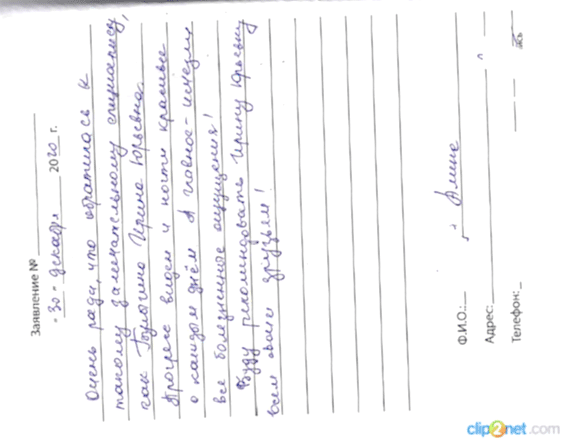 Заявление №
"30" декабря 2020 г.
Очень рада, что обратилась к
такому замечательному специалисту,
как Ирина Юрьевна.
Прогресс виден и ногти красивые
с каждым днём. А главное - исчезли
все болезненное ощущения!
Буду рекомендовать Ирину Юрьевну
всем своим друзьям!
Ф.И.О.: Алина
Адрес:
Телефон:
clip2net.com